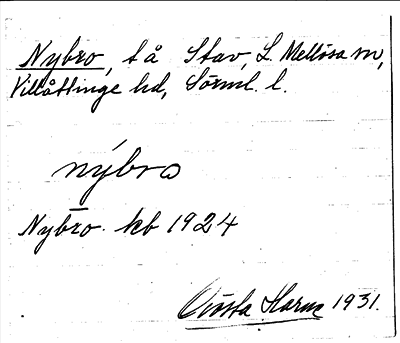 Nybro, t å Stav, L. Mellösa sn,
Villåttinge hd, Sörml. l.
nýbro
Nybro. kb 1924
Gösta Harne 1931.